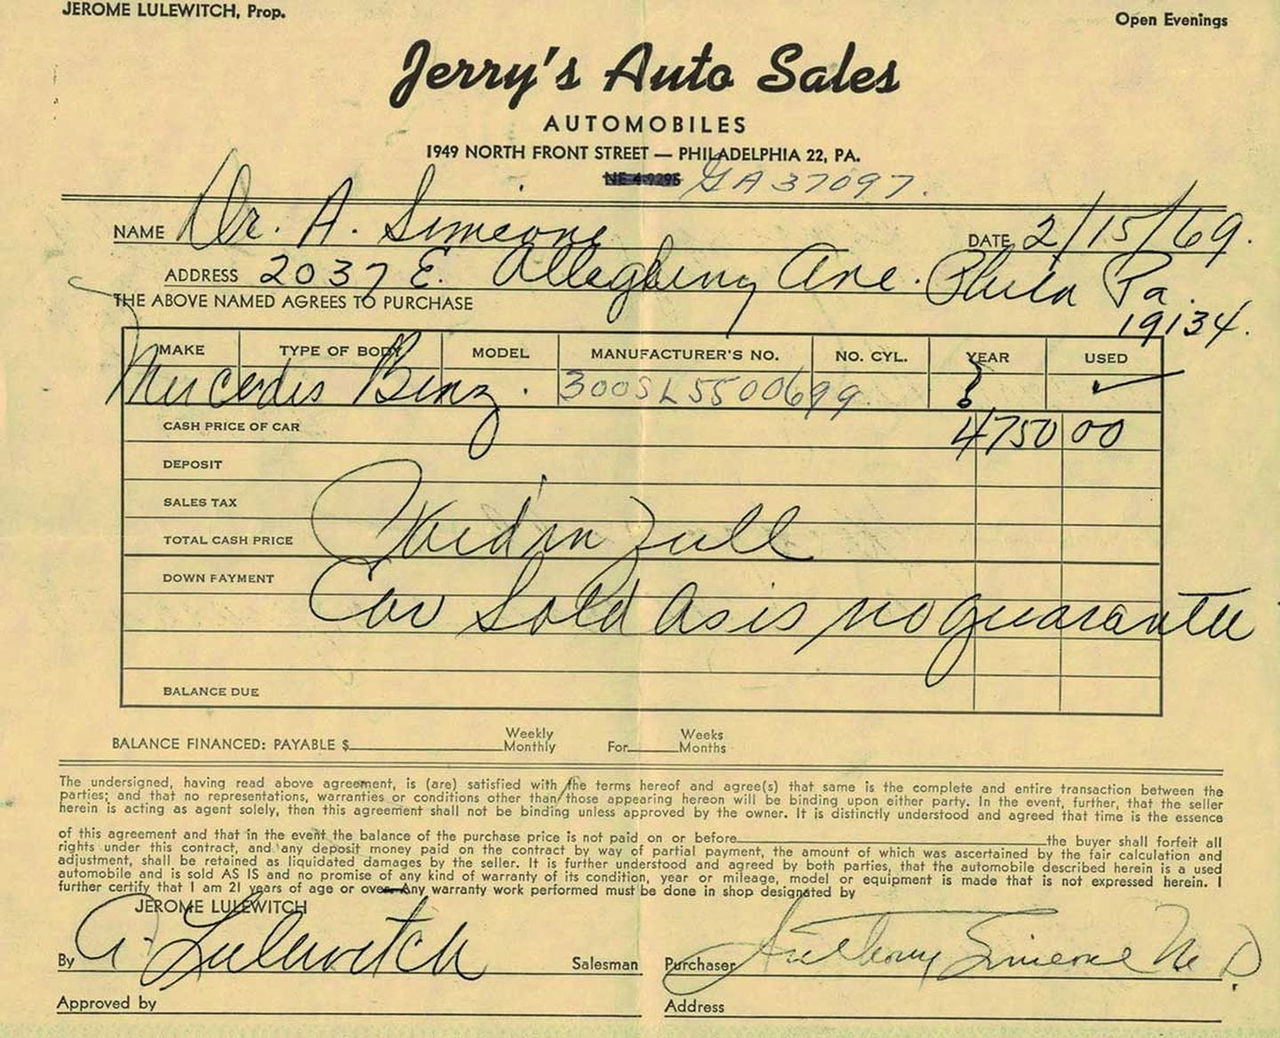 JEROME LULEWITCH, Prop.
Open Evenings
Jerry's Auto Sales
AUTOMOBILES
1949 NORTH FRONT STREET — PHILADELPHIA 22, PA.
NE 4-9295 GA 37097.
NAME Dr. A. Simeone DATE 2/15/69.
ADDRESS 2037 E. Allegheny Ave. Phila Pa.
19134.
THE ABOVE NAMED AGREES TO PURCHASE
MAKE TYPE OF BODY MODEL MANUFACTURER'S NO. NO. CYL. YEAR USED
Mercedis Benz. 300SL5500699 ? ✓
CASH PRICE OF CAR 4750 00
DEPOSIT
SALES TAX
TOTAL CASH PRICE Paid in full
DOWN PAYMENT
Car Sold as is no guarantee
BALANCE DUE
BALANCE FINANCED: PAYABLE $ Weekly Monthly For Weeks Months
The undersigned, having read above agreement, is (are) satisfied with the terms hereof and agree(s) that same is the complete and entire transaction between the
parties; and that no representations, warranties or conditions other than those appearing hereon will be binding upon either party. In the event, further, that the seller
herein is acting as agent solely, then this agreement shall not be binding unless approved by the owner. It is distinctly understood and agreed that time is the essence
of this agreement and that in the event the balance of the purchase price is not paid on or before the buyer shall forfeit all
rights under this contract, and any deposit money paid on the contract by way of partial payment, the amount of which was ascertained by the fair calculation and
adjustment, shall be retained as liquidated damages by the seller. It is further understood and agreed by both parties, that the automobile described herein is a used
automobile and is sold AS IS and no promise of any kind of warranty of its condition, year or mileage, model or equipment is made that is not expressed herein. I
further certify that I am 21 years of age or over. Any warranty work performed must be done in shop designated by
JEROME LULEWITCH
By A. Lulewitch Salesman Purchaser Anthony Simeone M D.
Approved by Address